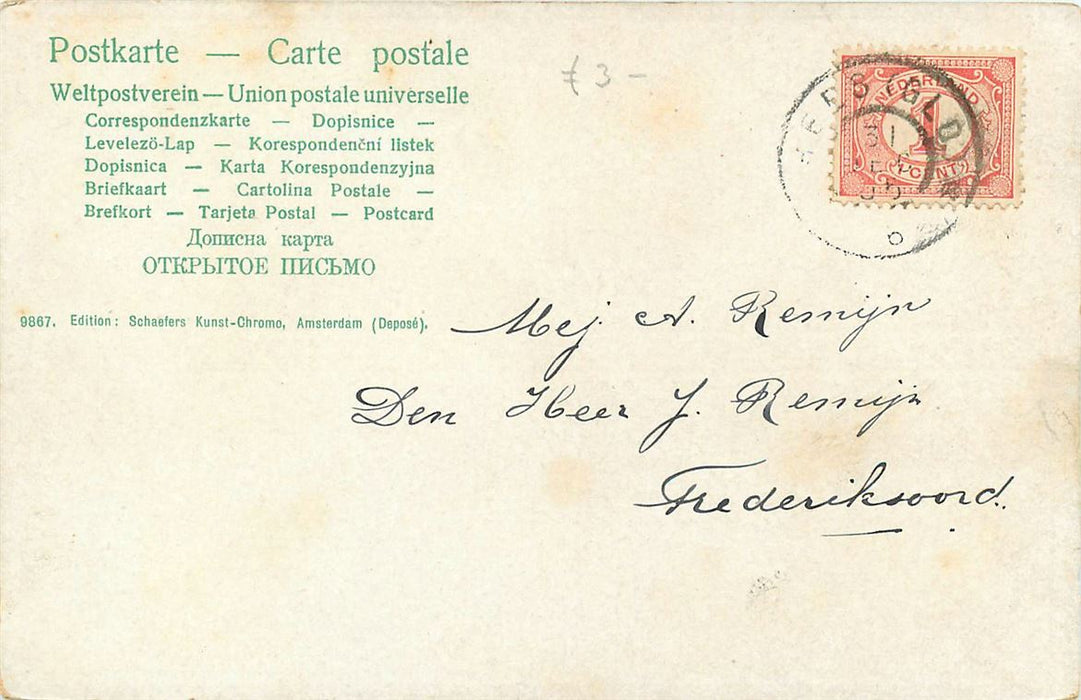 Postkarte — Carte postale
Weltpostverein — Union postale universelle
Correspondenzkarte — Dopisnice —
Levelező-Lap — Korespondenční lístek
Dopisnica — Karta Korespondenzyjna
Briefkaart — Cartolina Postale —
Brefkort — Tarjeta Postal — Postcard
Дописна карта
ОТКРЫТОЕ ПИСЬМО
9867. Edition: Schaefers Kunst-Chromo, Amsterdam (Deposé).
3-
NEDERLAND
1
CENT
GLD
31
6
Mej. A. Remijn
Den Heer J. Remijn
Frederiksoord.